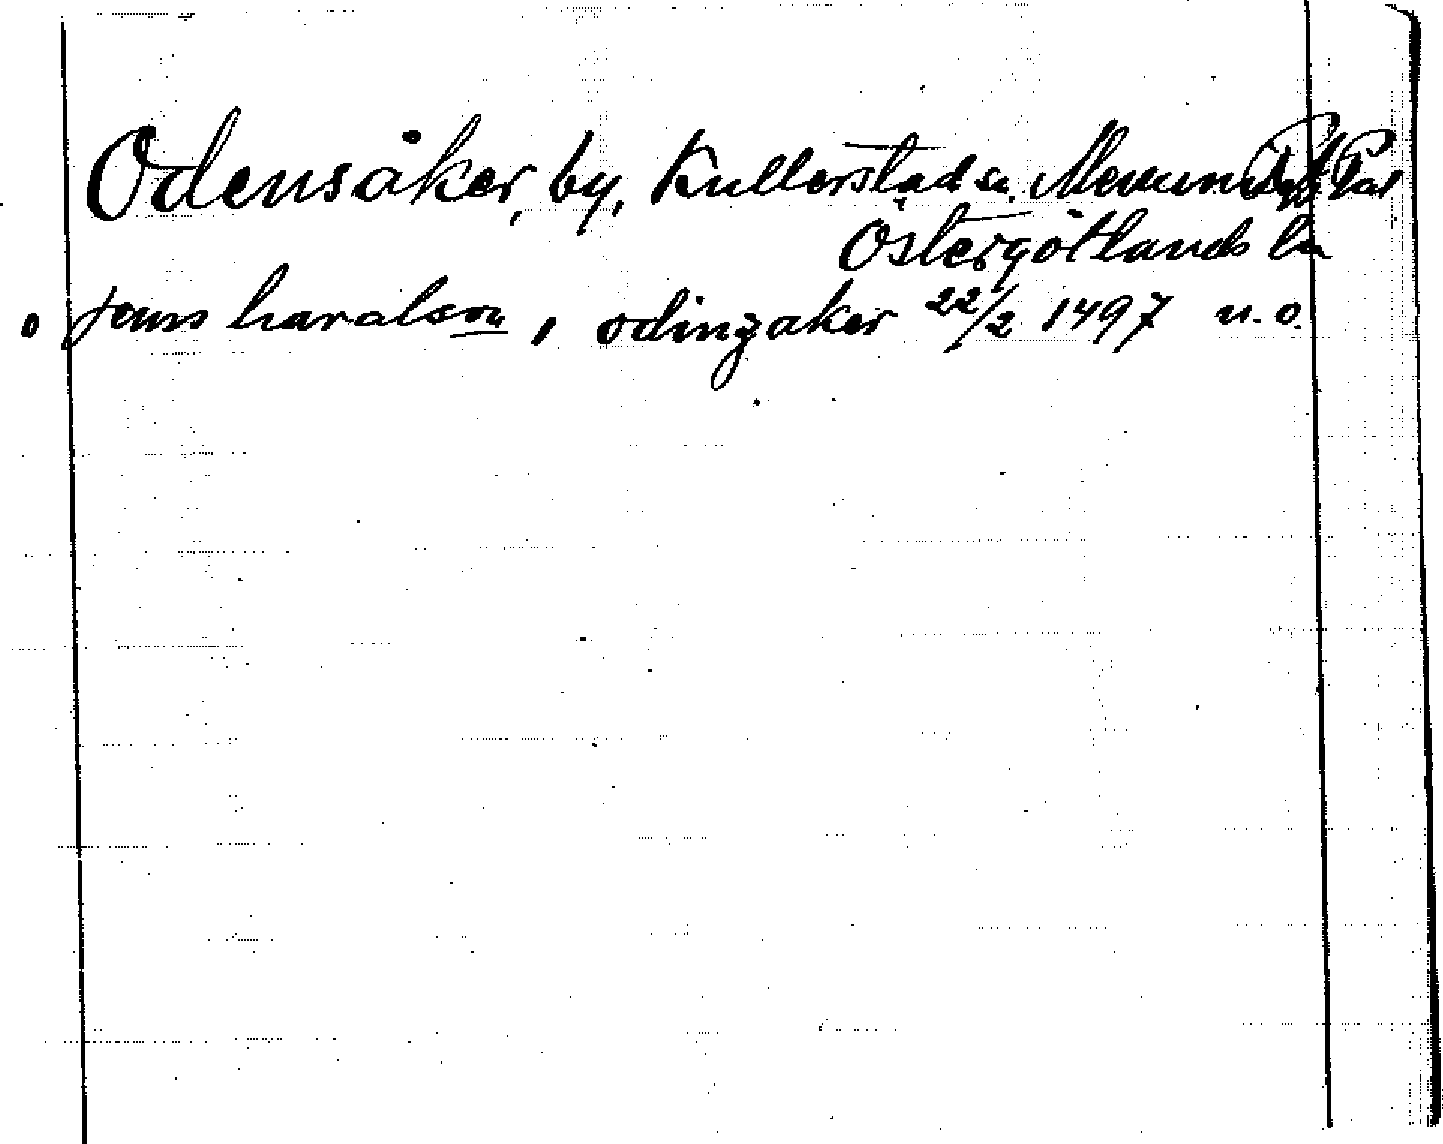 Odensåker, by, Kullerstad sn. Memmings
Östergötlands län
o Jenss haralson, odinzaker 22/2 1497 u.o.